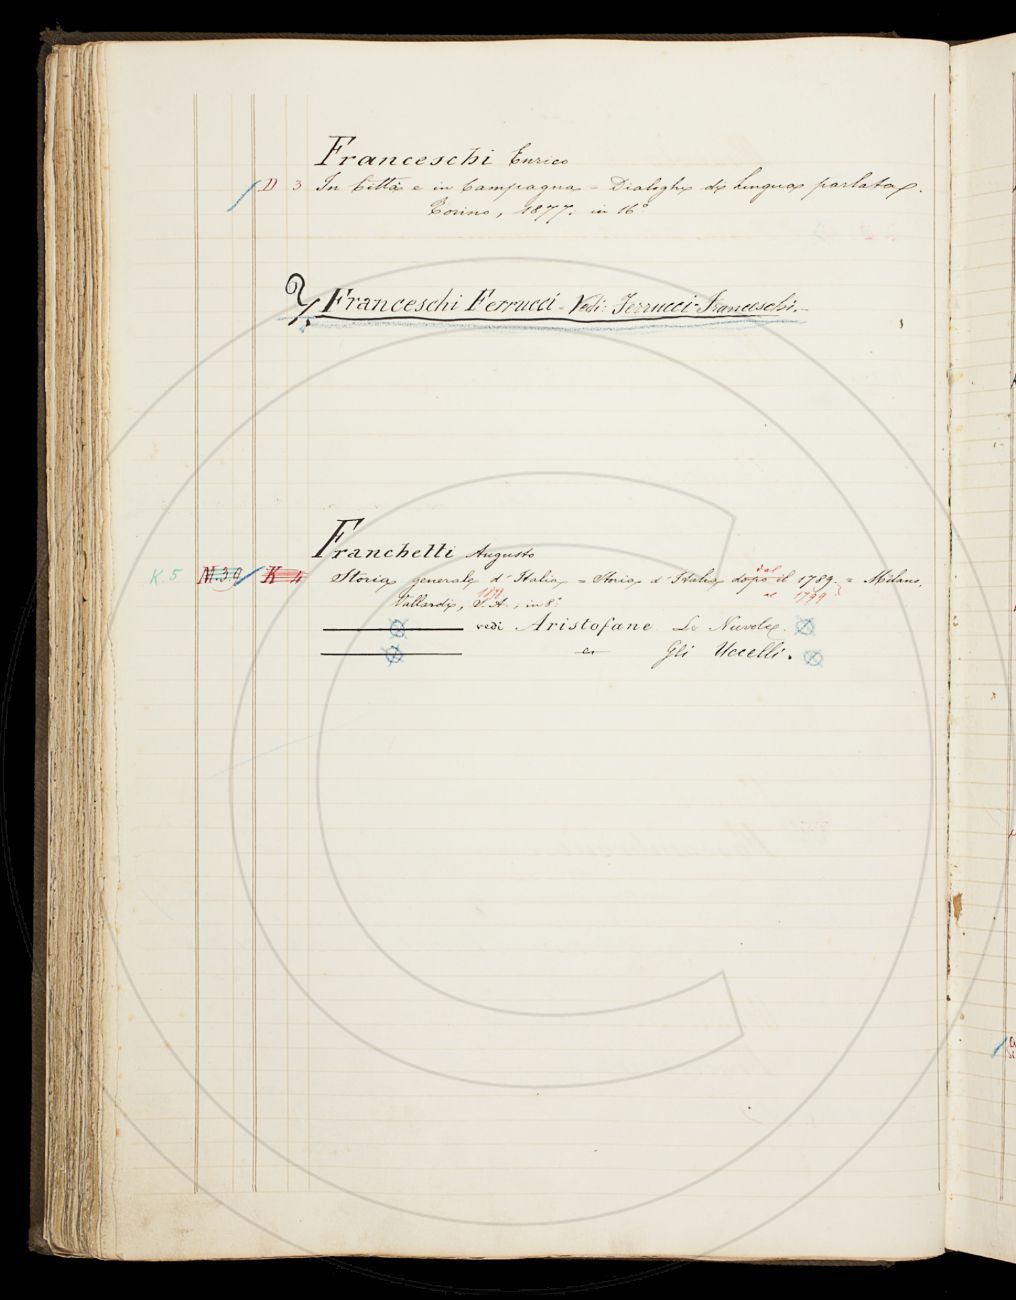 Franceschi Enrico
D 3 In Città e in Campagna = Dialoghi di lingua parlata.
Torino, 1877. in 16°
Franceschi Ferrucci = Vedi: Ferrucci-Franceschi.
Franchetti Augusto
K. 5 M.3.Q K 4 Storia generale d'Italia = Storia d'Italia dopo il 1789. = Milano,
dal
al 1799
Vallardi, S. A., in 8°
vedi Aristofane Le Nuvole.
Gli Uccelli.